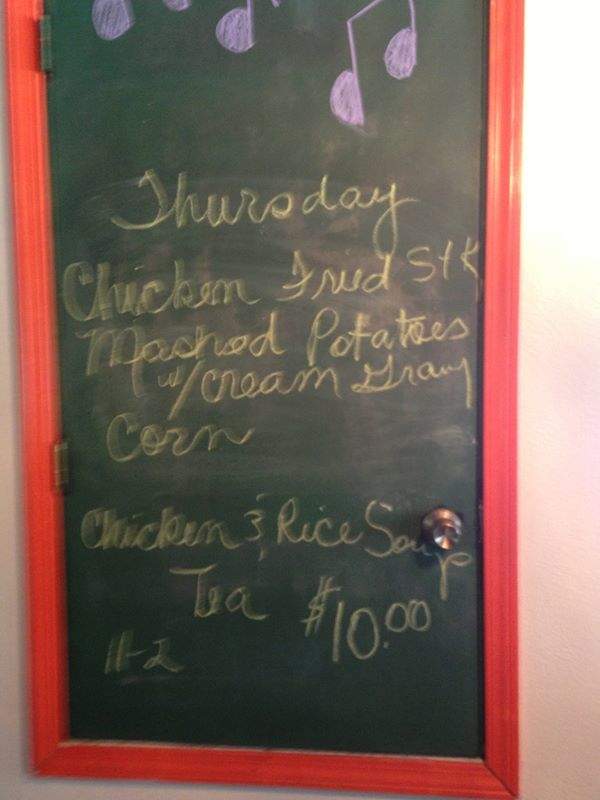 Thursday
Chicken Fried Stk
Mashed Potatoes
w/cream Gravy
Corn
Chicken & Rice Soup
Tea $10.00
11-2